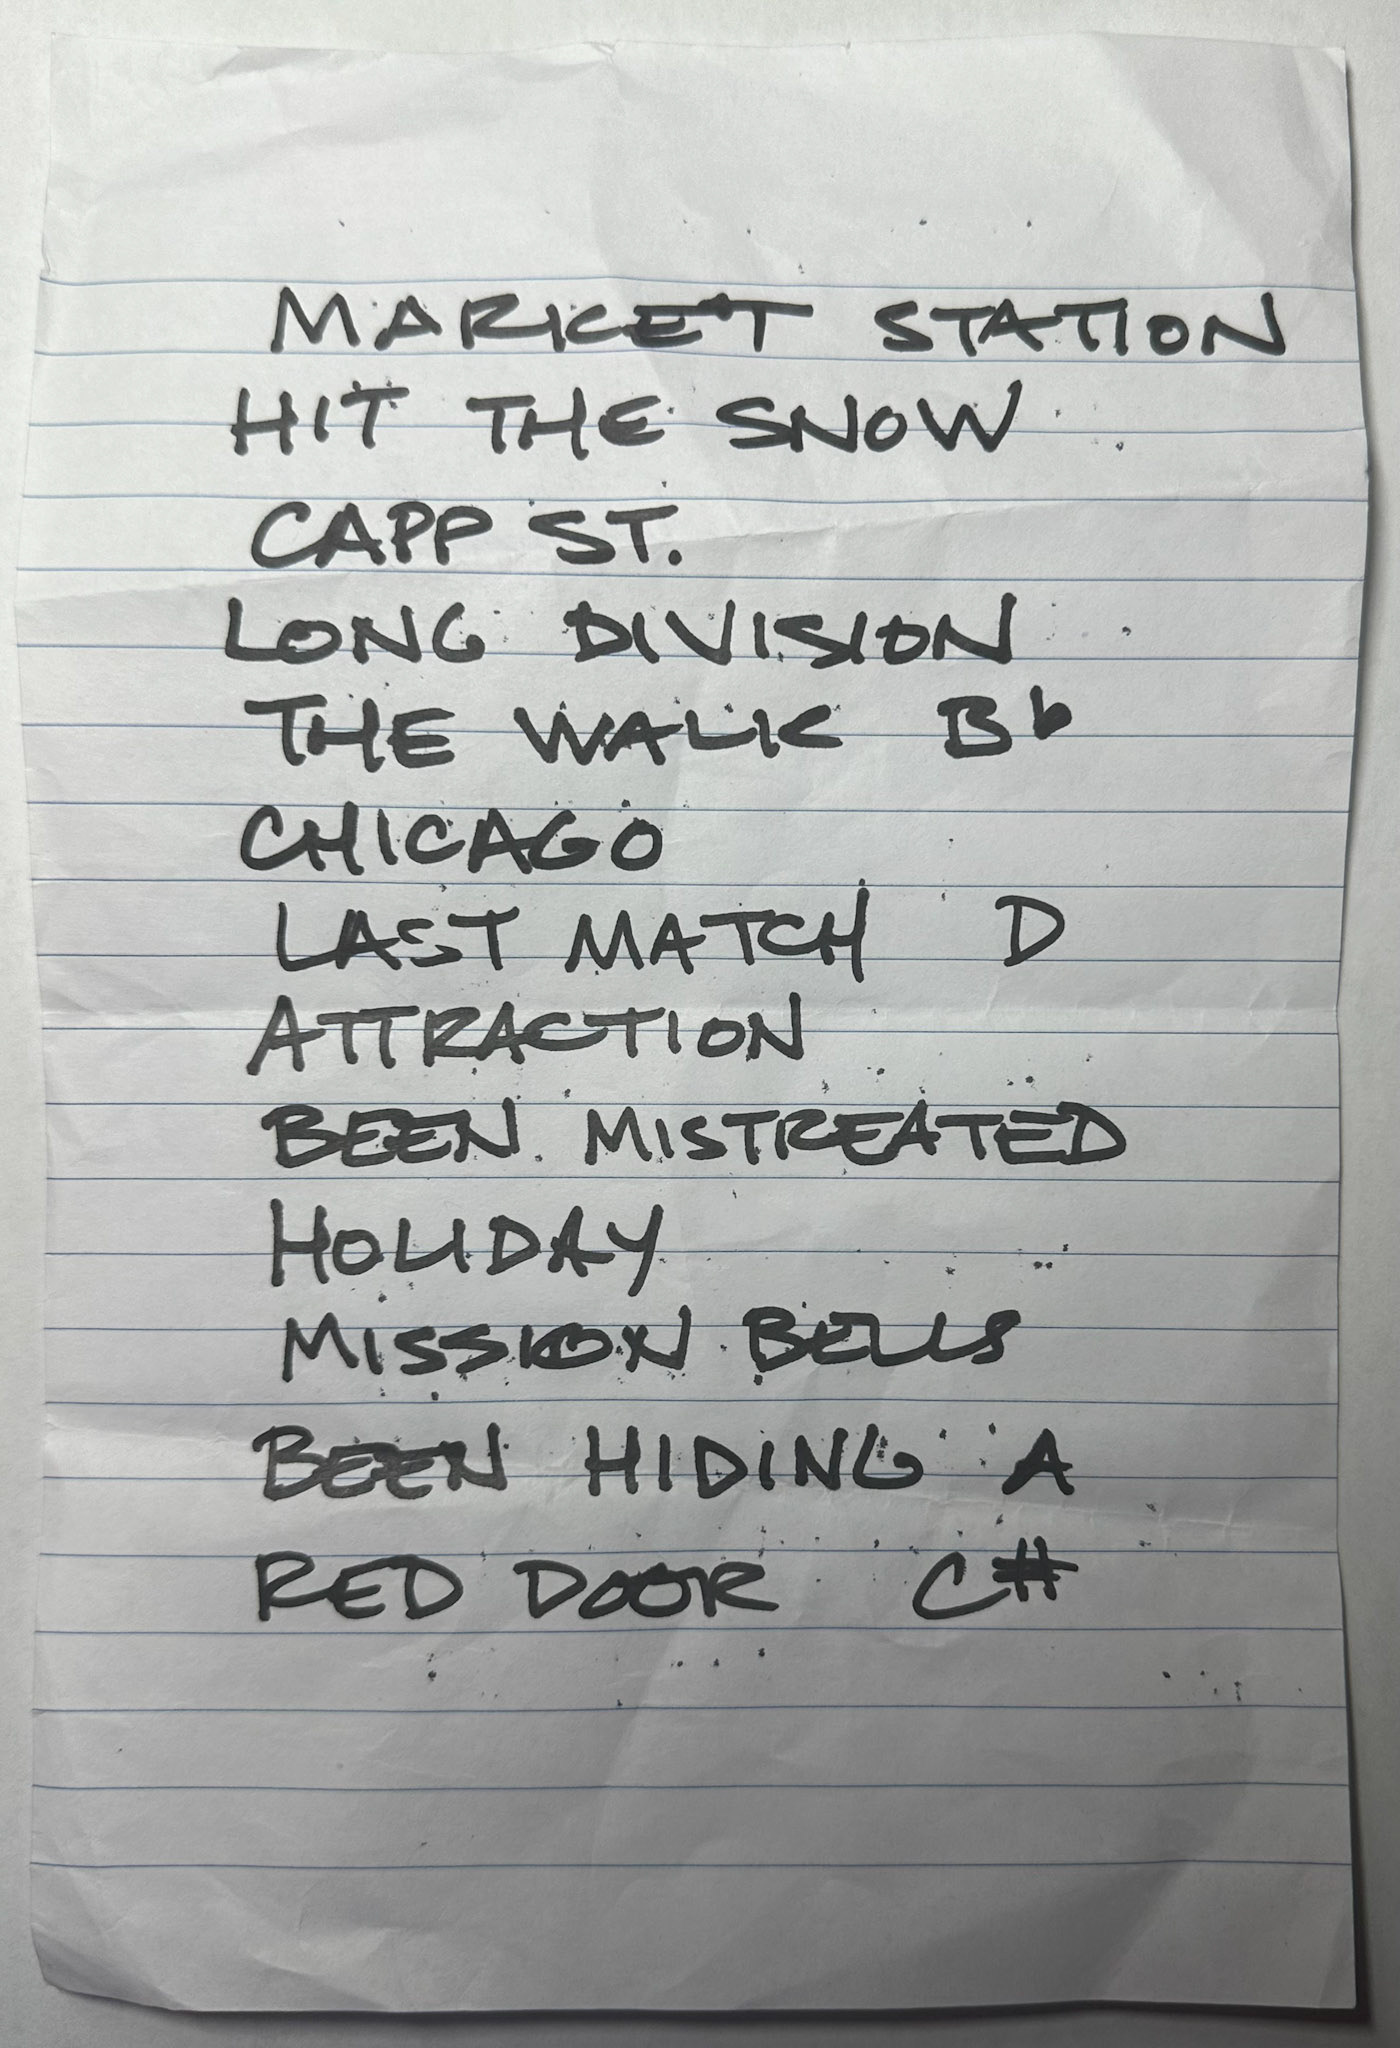 MARKET STATION
HIT THE SNOW
CAPP ST.
LONG DIVISION
THE WALK B♭
CHICAGO
LAST MATCH D
ATTRACTION
BEEN MISTREATED
HOLIDAY
MISSION BELLS
BEEN HIDING A
RED DOOR C#